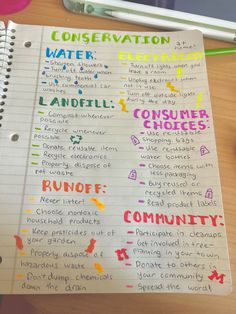 CONSERVATION at home
WATER:
ELECTRICITY:
- Shorter showers
- Turn off lights when you leave a room
- Turn off water when brushing teeth
- Unplug electronics when not in use
- Use commercial car washes
- Turn off outside lights during the day
LANDFILL:
- Compost whenever possible
- Recycle whenever possible
- Donate reusable items
- Recycle electronics
- Properly dispose of pet waste
CONSUMER CHOICES:
- Use reusable shopping bags
- Use reusable water bottles
- Choose items with less packaging
- Buy reused or recycled items
- Read product labels
RUNOFF:
- Never litter!
- Choose nontoxic household products
- Keep pesticides out of your garden
- Properly dispose of hazardous waste
- Don't dump chemicals down the drain
COMMUNITY:
- Participate in cleanups
- Get involved in tree-planting in your town
- Donate to others in your community
- Spread the word!